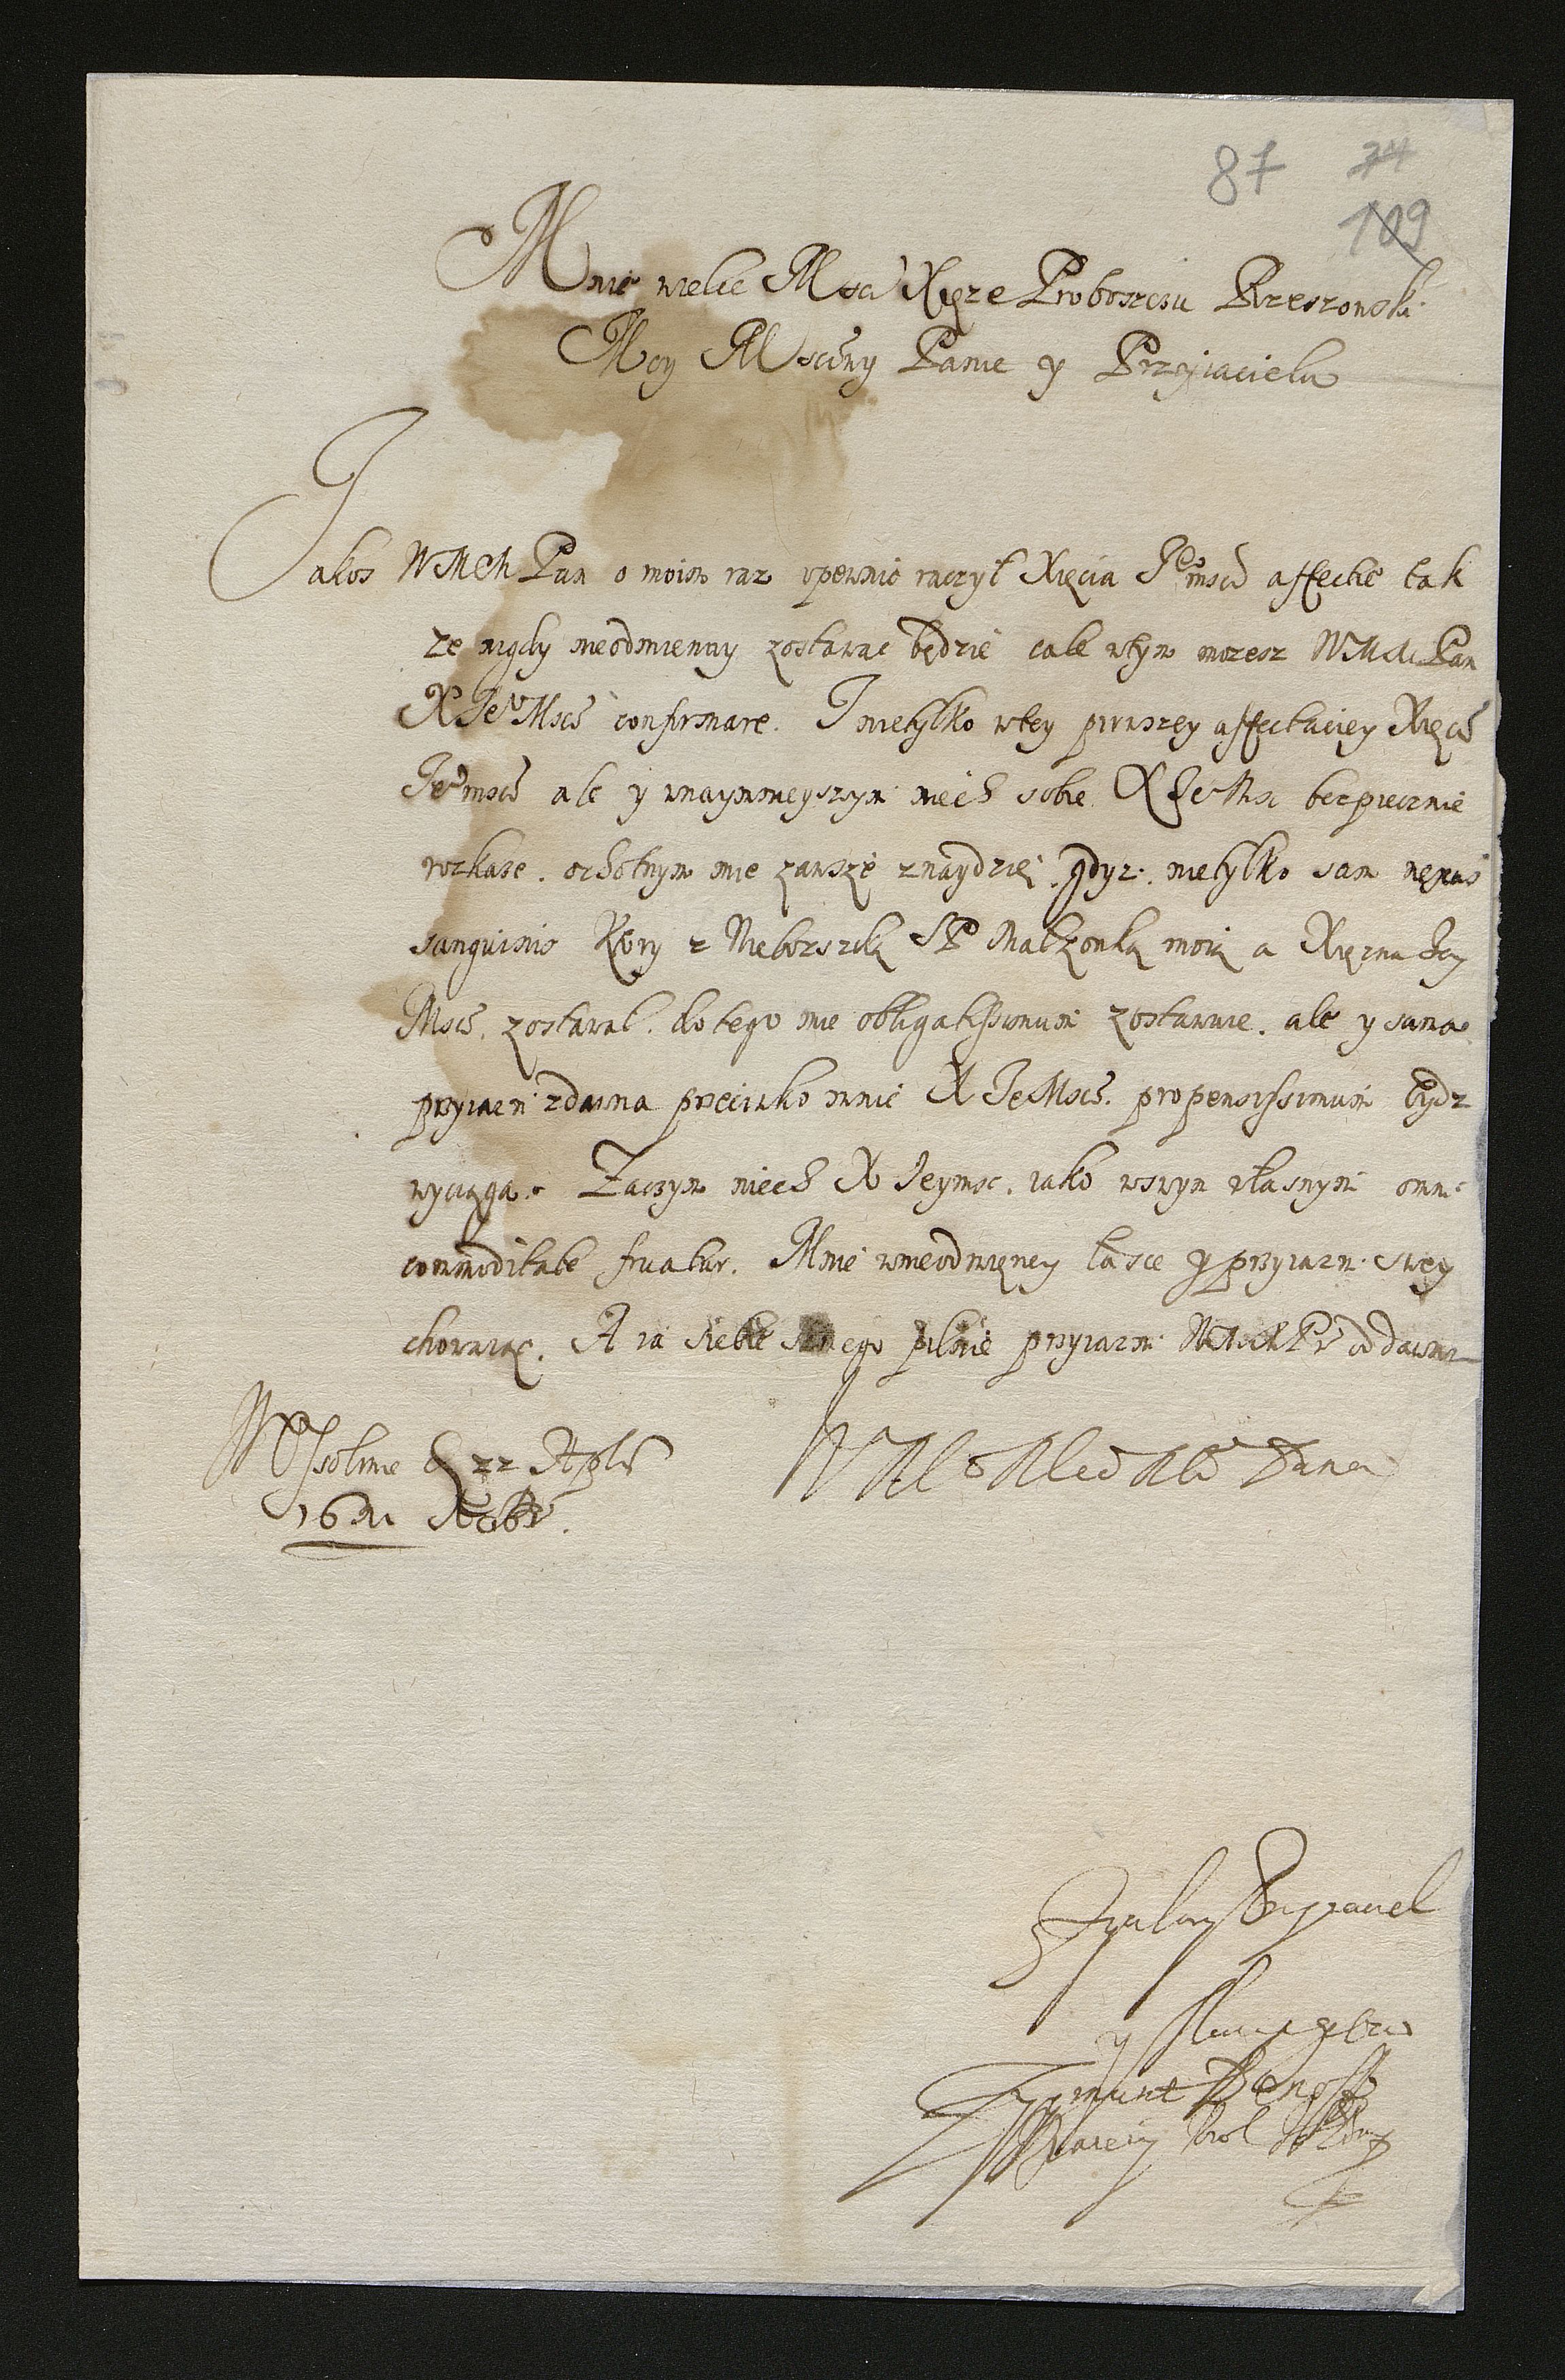 87 74
109
Mnie wielce Mści Xięze Proboszczu Rzeszowski
Moy Mściwy Panie y Przyiacielu
Jakos WMM Pan o moim raz upewnic raczył Xięcia Jeomści affectie tak
ze nigdy nieodmienny zostawac będzie cale wtym mozesz WMM Pan
X JeoMści confirmare. I nietylko wtey pierwszey affectaciey Xięcia
Jeomści ale y wnaymnieyszym niech sobie X JeMśc bezpiecznie
rozkaze. ochotnym mie zawsze znaydzie, gdyz. nietylko sam nexus
sanguinis ktory z Nieboszcką SP Małzonką moią a Xięzna Jey
Mści. zostawal. do tego mie obligatissimum zostawuie. ale y sama
przyiazn zdawna przeciwko mnie X JeMści. propensissimum bydz
wyciąga. Zaczym niech X Jeymsc. iako wswym własnym omni
commoditate fruatur. Mnie wnieodmięney łasce y przyiazni swey
chowaiąc. A ia siebie samego pilnie przyiazni WMM Pu oddawam
W Ossolinie d 22 Aplis
Roku.
WM Mego Mo Pana
Zyczliwy Przyiaciel
y sługa
Zygmunt Denoff